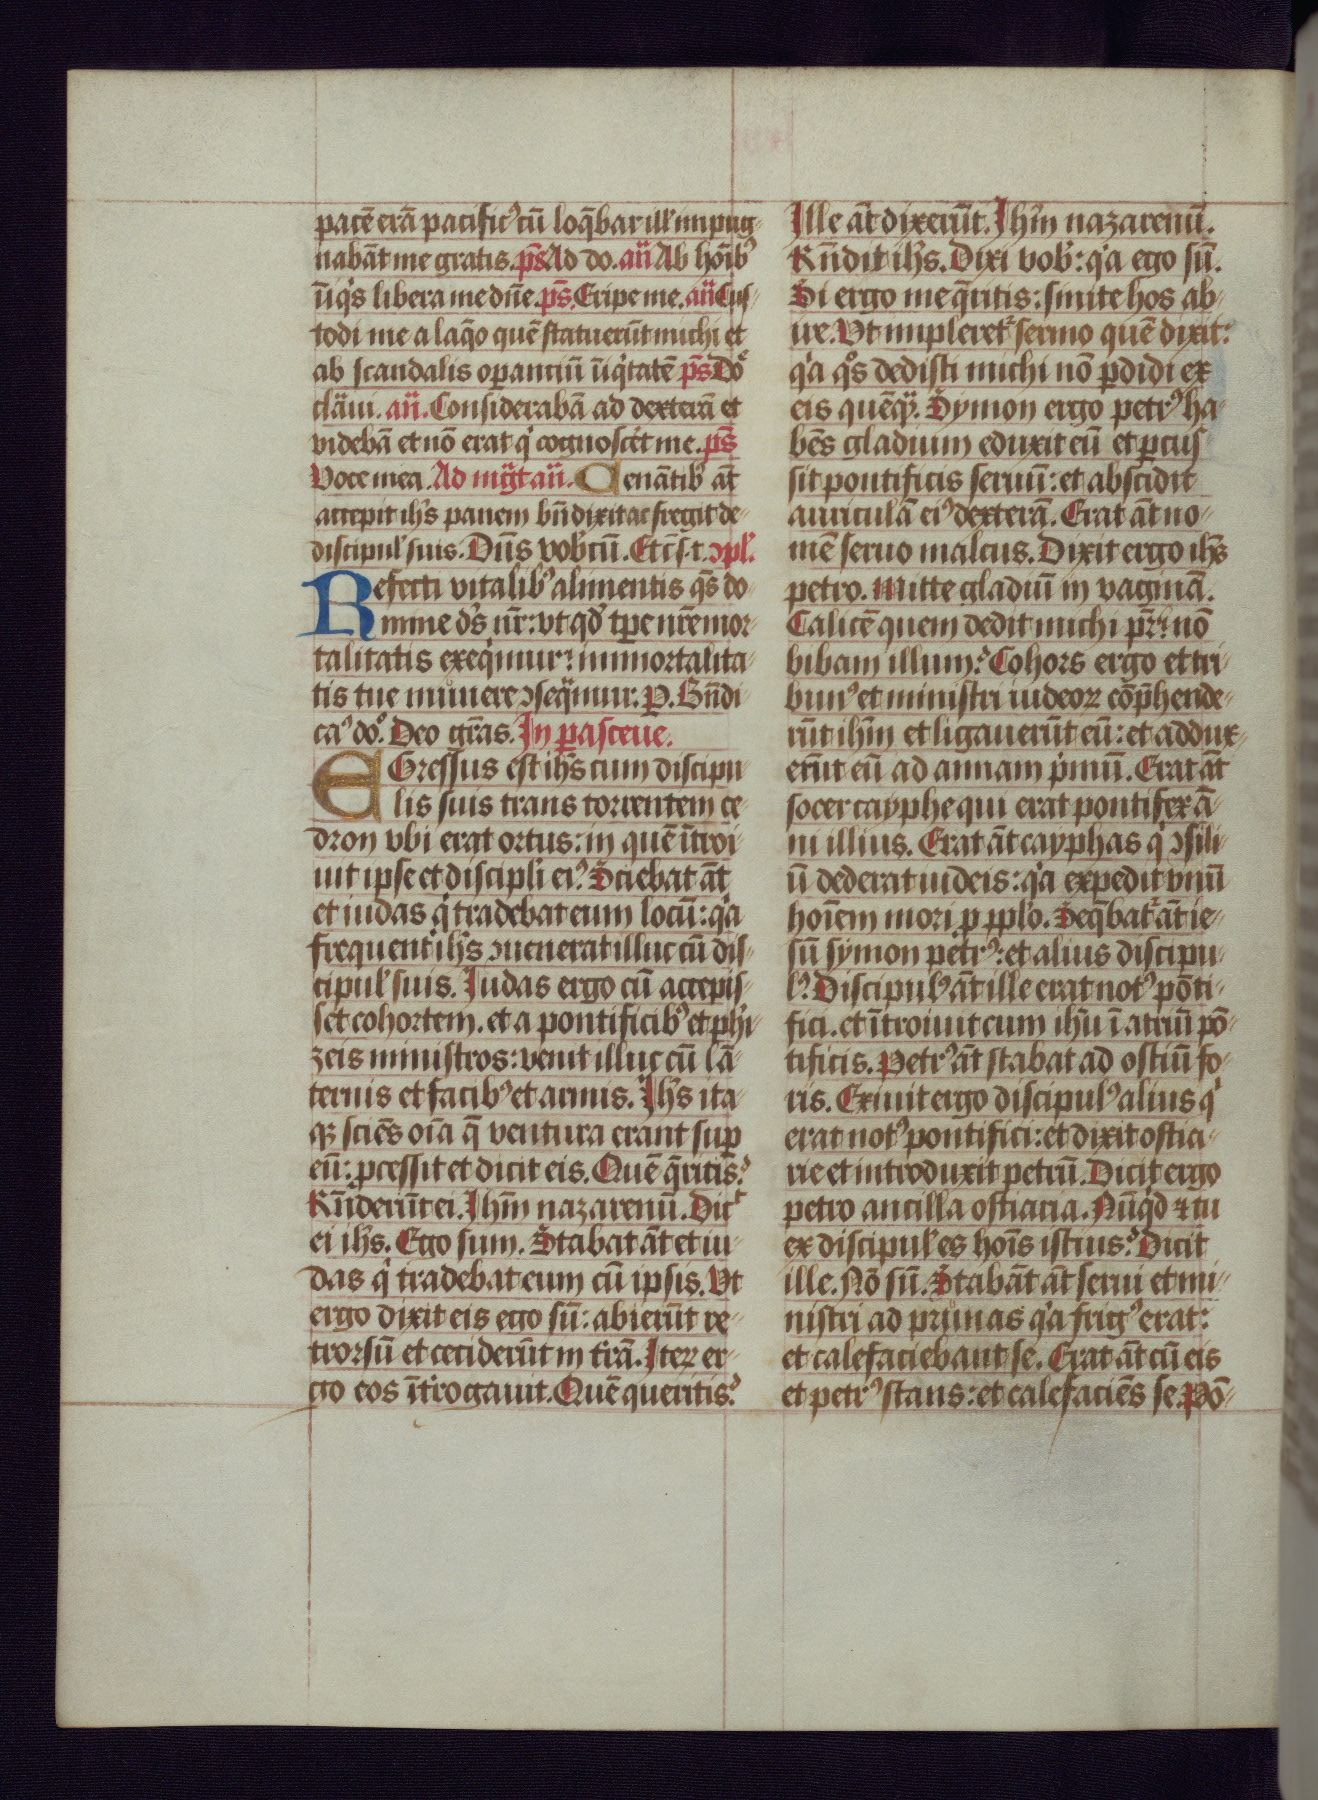 pacē erā pacificꝰ cū loq̄bar ill' impug-
nabāt me gratis. p̄s Ad do. añ Ab hoībꝰ
iniq̇s libera me dn̄e. p̄s. Eripe me. añ Cus-
todi me a laq̄o quē statuerūt michi et
ab scandalis operanciū iniq̇tatē p̄s Do͛
clāui. añ. Considerabā ad dexterā et
videbā et nō erat q̇ cognosc͛et me. p̄s
Voce mea. Ad mg̃t añ. Cenātibꝰ aūt
accepit ih̄s panem bn̄dixit ac fregit de-
discipul' suis. Dn̄s vobcū. Et cū s. t. ꝯpl'.
Refecti vitalibꝰ alimentis q̄s do-
mine d̄s nr̄: vt qd̄ tp̄e nr̄e mor-
talitatis exeq̇mur: immortalita-
tis tue munere ꝯseq̄mur. P. Bn̄di-
caꝰ do͛. Deo gr̄as. In ꝑasceue.
EGressus est ih̄s cum discipu-
lis suis trans torrentem ce-
dron vbi erat ortus: in quē ītroi-
uit ipse et discipli eiꝰ. Sciebat āt
et iudas q̇ tradebat eum locū: q̇a
frequent͛ ih̄s ꝯuenerat illuc cū dis-
cipul' suis. Iudas ergo cū accepis-
set cohortem. et a pontificibꝰ et ph'i-
zeis ministros: venit illuc cū lā-
ternis et facibꝰ et armis. Ih̄s ita-
qꝫ sciēs oīa q̄ ventura erant suꝑ
eū: ꝓcessit et dicit eis. Quē q̄ritis?
Rn̄derūt ei. Ih̄m nazarenū. Dic͛
ei ih̄s. Ego sum. Stabat āt et iu-
das q̇ tradebat eum cū ipsis. Vt
ergo dixit eis ego sū: abierūt re-
trorsū et ceciderūt in t͛rā. Iteꝝ er-
go eos īt͛rogauit. Quē queritis?
Ille āt dixerūt. Ih̄m nazarenū.
Rn̄dit ih̄s. Dixi vob': q̇a ego sū.
Si ergo me q̄ritis: sinite hos ab-
ire. Vt impleret᷑ sermo quē dixit:
q̇a qo̊s dedisti michi nō ꝑdidi ex
eis quēqȝ. Symon ergo petrꝰ ha-
bēs gladium eduxit eū et ꝑcus-
sit pontificis seruū: et abscidit
auriculā eiꝰ dexterā. Erat āt no-
mē seruo malcus. Dixit ergo ih̄s
petro. Mitte gladiū in vaginā.
Calicē quem dedit michi pr̄: nō
bibam illum? Cohors ergo et tri-
bunꝰ et ministri iudeoꝝ cōp̄hende-
rūt ih̄m et ligauerūt eū: et addux-
erūt eū ad annam ṗmū. Erat āt
socer cayphe qui erat pontifex ā-
ni illius. Erat āt cayphas q̇ ꝯsili-
ū dederat iudeis: q̇a expedit vnū
hoīem mori ꝓ pplo. Seq̄bat᷑ āt ie-
sū symon petrꝰ: et alius discipu-
lꝰ. Discipulꝰ āt ille erat notꝰ pōti-
fici. et ītroiuit cum ih̄u ī atriū pō-
tificis. Petrꝰ āt stabat ad ostiū fo-
ris. Exiuit ergo discipulꝰ alius q̇
erat notꝰ pontifici: et dixit ostia-
rie et introduxit petrū. Dicit ergo
petro ancilla ostiaria. Nūq̇d ⁊ tu
ex discipul' es hoīs istius? Dicit
ille. Nō sū. Stabāt āt serui et mi-
nistri ad prunas q̇a frigꝰ erat:
et calefaciebant se. Erat āt cū eis
et petrꝰ stans: et calefaciēs se. Pō-